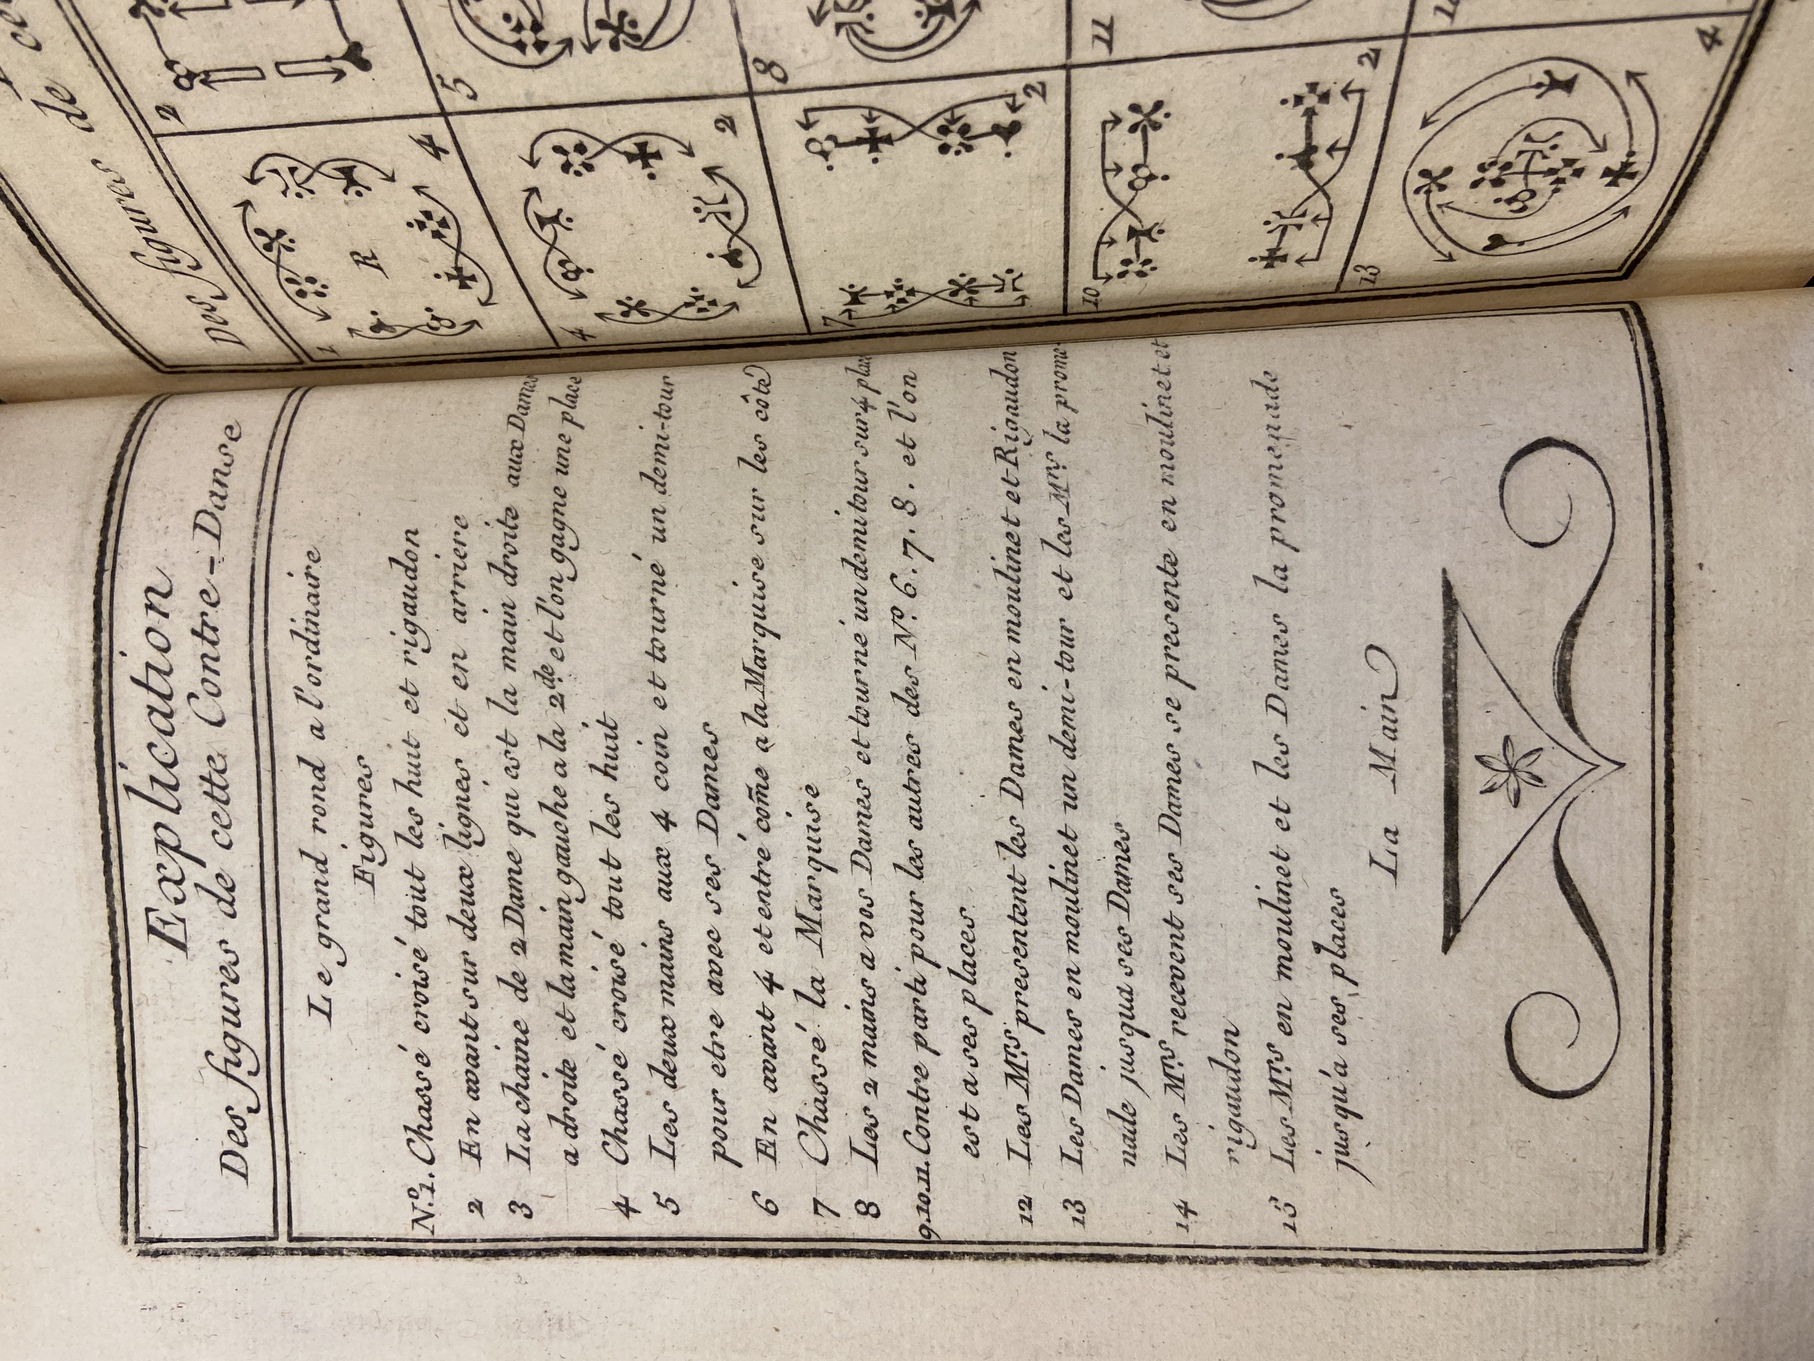 Explication
Des figures de cette Contre-Danse
Le grand rond a l'ordinaire
Figures
No. 1. Chassé croisé tout les huit et rigaudon
2 En avant sur deux lignes et en arriere
3 La chaine de 2 Dame qui est la main droite aux Dames
a droite et la main gauche a la 2de et l'on gagne une place
4 Chassé croisé tout les huit
5 Les deux mains aux 4 coin et tourné un demi-tour
pour etre avec ses Dames
6 En avant 4 et entré com̃e a la Marquise sur les côté
7 Chassé la Marquise
8 Les 2 mains a vos Dames et tourné un demi tour sur 4 plac
9.10.11. Contre parti pour les autres des No. 6. 7. 8. et l'on
est a ses places
12 Les Mrs. presentent les Dames en moulinet et Rigaudon
13 Les Dames en moulinet un demi-tour et les Mrs. la prome-
nade jusqua ses Dames
14 Les Mrs. recevent ses Dames se presente en moulinet et
rigaudon
15 Les Mrs. en moulinet et les Dames la promenade
jusqu'a ses places
La Main
Des figures de ce
1
R
4
2
5
4
2
8
7
2
11
10
2
13
4